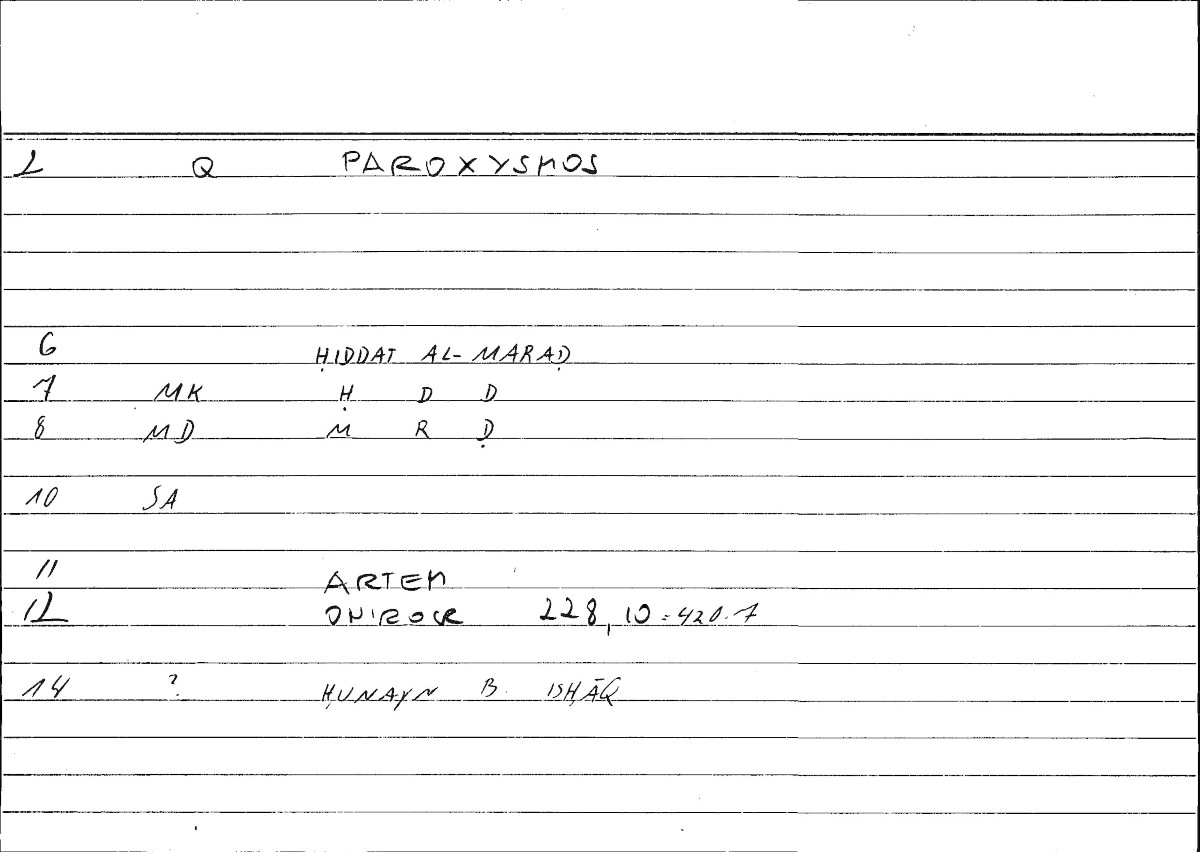 2 Q PAROXYSMOS
6 ḤIDDAT AL-MARAḌ
7 MK Ḥ D D
8 MD M R Ḍ
10 SA
11 ARTEM
12 ONIROCR 228,10 = 420.7
14 ? ḤUNAYN B. ISḤĀQ